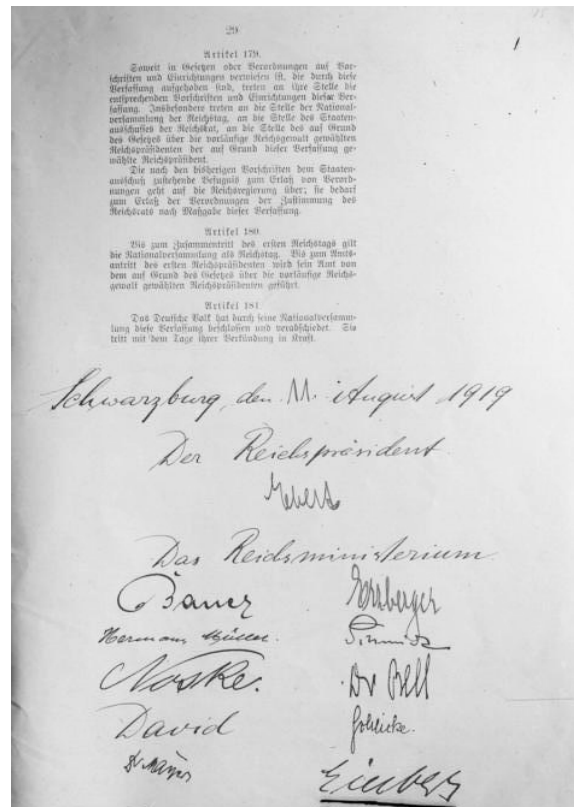 29
Artikel 179.
Soweit in Gesetzen oder Verordnungen auf Vor-
schriften und Einrichtungen verwiesen ist, die durch diese
Verfassung aufgehoben sind, treten an ihre Stelle die
entsprechenden Vorschriften und Einrichtungen dieser Ver-
fassung. Insbesondere treten an die Stelle der National-
versammlung der Reichstag, an die Stelle des Staaten-
ausschusses der Reichsrat, an die Stelle des auf Grund
des Gesetzes über die vorläufige Reichsgewalt gewählten
Reichspräsidenten der auf Grund dieser Verfassung ge-
wählte Reichspräsident.
Die nach den bisherigen Vorschriften dem Staaten-
ausschuß zustehende Befugnis zum Erlaß von Verord-
nungen geht auf die Reichsregierung über; sie bedarf
zum Erlaß der Verordnungen der Zustimmung des
Reichsrats nach Maßgabe dieser Verfassung.
Artikel 180.
Bis zum Zusammentritt des ersten Reichstags gilt
die Nationalversammlung als Reichstag. Bis zum Amts-
antritt des ersten Reichspräsidenten wird sein Amt von
dem auf Grund des Gesetzes über die vorläufige Reichs-
gewalt gewählten Reichspräsidenten geführt.
Artikel 181.
Das Deutsche Volk hat durch seine Nationalversamm-
lung diese Verfassung beschlossen und verabschiedet. Sie
tritt mit dem Tage ihrer Verkündung in Kraft.
Schwarzburg, den 11. August 1919
Der Reichspräsident
Ebert
Das Reichsministerium
Bauer Erzberger
Hermann Müller. Schmidt
Noske. Dr Bell
David Schlicke.
Dr Mayer Giesberts